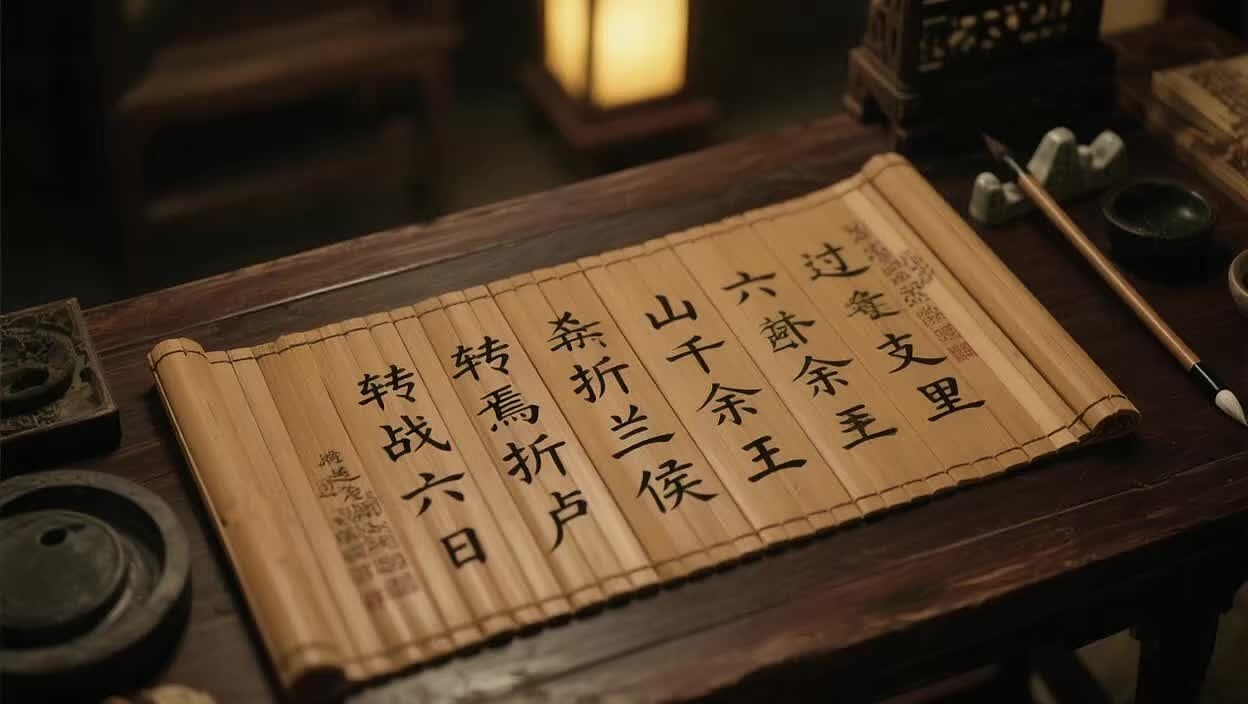 过支里
六余王
山千余王
折兰侯
转焉折卢
转战六日